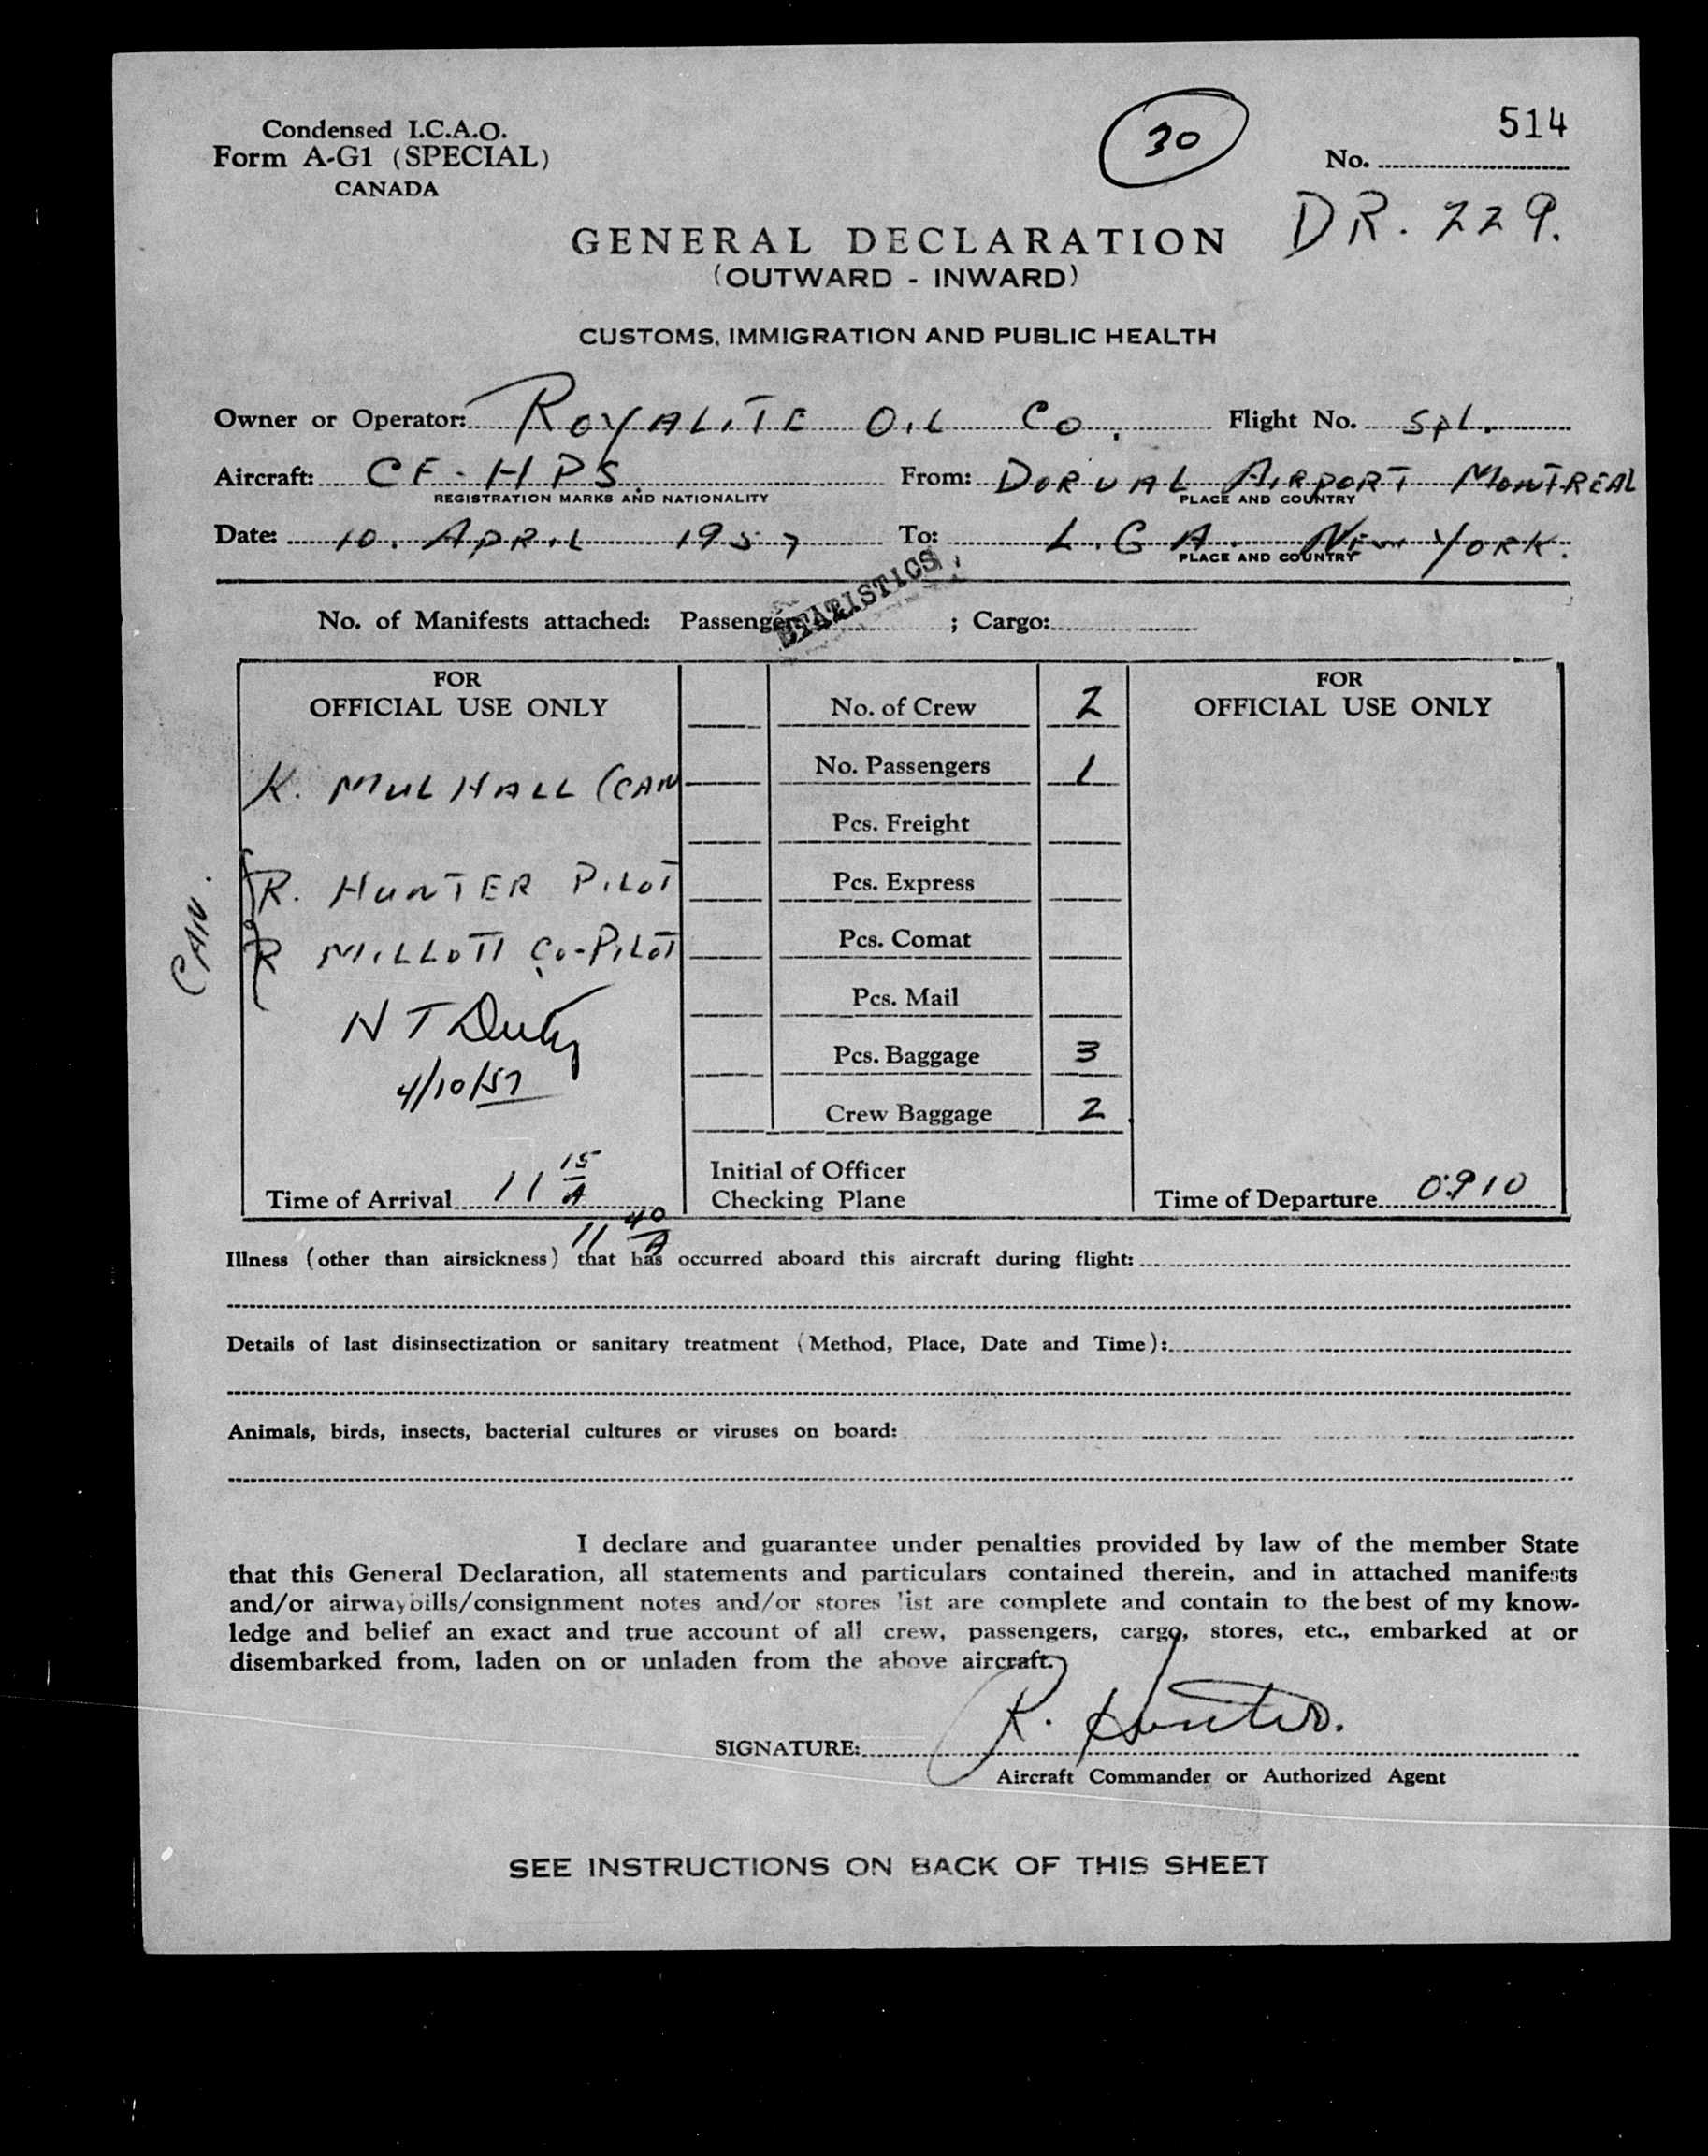 Condensed I.C.A.O.
Form A-G1 (SPECIAL)
CANADA
30
514
No.
DR. 229.
GENERAL DECLARATION
(OUTWARD - INWARD)
CUSTOMS, IMMIGRATION AND PUBLIC HEALTH
Owner or Operator: ROYALITE OIL CO. Flight No. Spl.
Aircraft: CF-HPS. From: DORVAL AIRPORT MONTREAL
REGISTRATION MARKS AND NATIONALITY PLACE AND COUNTRY
Date: 10. APRIL 1957 To: L.G.A. NEW YORK.
PLACE AND COUNTRY
STATISTICS
No. of Manifests attached: Passenger ; Cargo:
FOR
OFFICIAL USE ONLY
K. MULHALL (CAN
CAN.
R. HUNTER PILOT
R MILLOTT CO-PILOT
N T
4/10/57
Time of Arrival 11 15 A
11 40 A
No. of Crew 2
No. Passengers 1
Pcs. Freight
Pcs. Express
Pcs. Comat
Pcs. Mail
Pcs. Baggage 3
Crew Baggage 2
Initial of Officer
Checking Plane
FOR
OFFICIAL USE ONLY
Time of Departure 0910
Illness (other than airsickness) that has occurred aboard this aircraft during flight:
Details of last disinsectization or sanitary treatment (Method, Place, Date and Time):
Animals, birds, insects, bacterial cultures or viruses on board:
I declare and guarantee under penalties provided by law of the member State
that this General Declaration, all statements and particulars contained therein, and in attached manifests
and/or airwaybills/consignment notes and/or stores list are complete and contain to the best of my know-
ledge and belief an exact and true account of all crew, passengers, cargo, stores, etc., embarked at or
disembarked from, laden on or unladen from the above aircraft.
SIGNATURE: R. Hunter.
Aircraft Commander or Authorized Agent
SEE INSTRUCTIONS ON BACK OF THIS SHEET